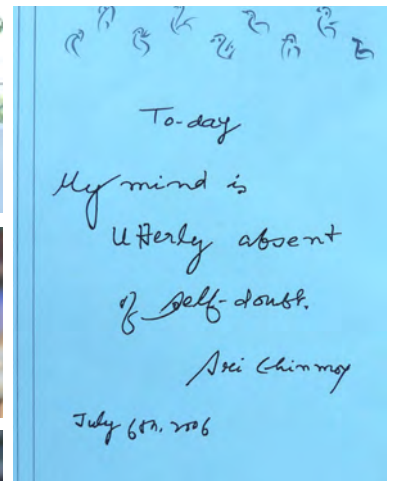 To-day
My mind is
Utterly absent
of self-doubt.
Sri Chinmoy
July 6th, 2006